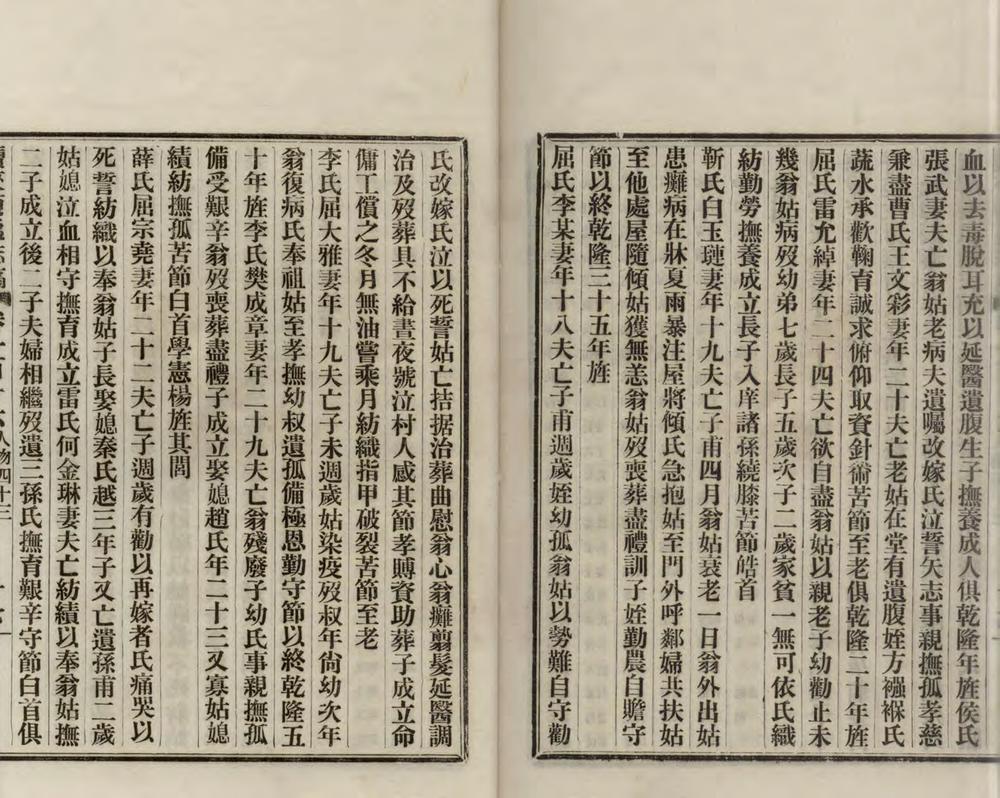 血以去毒脫耳充以延醫遺腹生子撫養成人俱乾隆年旌侯氏
張武妻夫亡翁姑老病夫遺囑改嫁氏泣誓矢志事親撫孤孝慈
兼盡曹氏王文彩妻年二十夫亡老姑在堂有遺腹姪方襁褓氏
蔬水承歡鞠育誠求俯仰取資針術苦節至老俱乾隆二十年旌
屈氏雷允綽妻年二十四夫亡欲自盡翁姑以親老子幼勸止未
幾翁姑病歿幼弟七歲長子五歲次子二歲家貧一無可依氏織
紡勤勞撫養成立長子入庠諸孫繞膝苦節皓首
靳氏白玉璉妻年十九夫亡子甫四月翁姑衰老一日翁外出姑
患癱病在牀夏雨暴注屋將傾氏急抱姑至門外呼鄰婦共扶姑
至他處屋隨傾姑獲無恙翁姑歿喪葬盡禮訓子姪勤農自贍守
節以終乾隆三十五年旌
屈氏李某妻年十八夫亡子甫週歲姪幼孤翁姑以勢難自守勸
氏改嫁氏泣以死誓姑亡拮据治葬曲慰翁心翁癱翦髮延醫調
治及歿葬具不給晝夜號泣村人感其節孝賻資助葬子成立命
傭工償之冬月無油嘗乘月紡織指甲破裂苦節至老
李氏屈大雅妻年十九夫亡子未週歲姑染疫歿叔年尙幼次年
翁復病氏奉祖姑至孝撫幼叔遺孤備極恩勤守節以終乾隆五
十年旌李氏樊成章妻年二十九夫亡翁殘廢子幼氏事親撫孤
備受艱辛翁歿喪葬盡禮子成立娶媳趙氏年二十三又寡姑媳
績紡撫孤苦節白首學憲楊旌其閭
薛氏屈宗堯妻年二十二夫亡子週歲有勸以再嫁者氏痛哭以
死誓紡織以奉翁姑子長娶媳秦氏越三年子又亡遺孫甫二歲
姑媳泣血相守撫育成立雷氏何金琳妻夫亡紡績以奉翁姑撫
二子成立後二子夫婦相繼歿遺三孫氏撫育艱辛守節白首俱
人物四十三